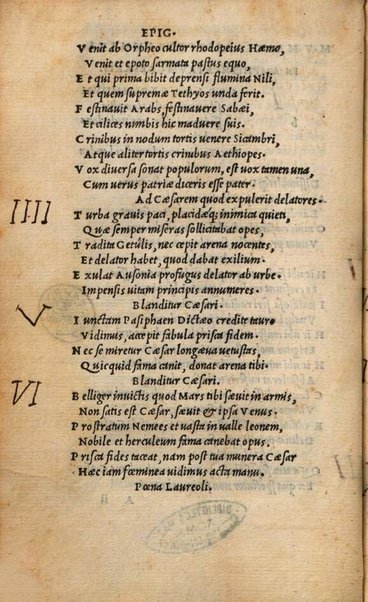 EPIG.
Venit ab Orpheo cultor rhodopeius Hæmo,
Venit et epoto sarmata pastus equo,
Et qui prima bibit deprensi flumina Nili,
Et quem supremæ Tethyos unda ferit.
Festinauit Arabs, festinauere Sabæi,
Et cilices nimbis hic maduere suis.
Crinibus in nodum tortis venere Sicambri,
Atque aliter tortis crinibus Aethiopes.
Vox diuersa sonat populorum, est vox tamen una,
Cum verus patriæ diceris esse pater.
Ad Cæsarem quod expulerit delatores.
IIII
Turba grauis paci, placidæq; inimica quieti,
Quæ semper miseras sollicitabat opes,
Tradita Getulis, nec cœpit arena nocentes,
Et delator habet, quod dabat exilium.
Exulat Ausonia profugus delator ab urbe.
Impensis uitam principis annumeres.
Blanditur Cæsari.
V
Iunctam Pasiphaen Dictæo credite tauro
Vidimus, accepit fabula prisca fidem.
Nec se miretur Cæsar longæua uetustas,
Quicquid fama canit, donat arena tibi.
Blanditur Cæsari.
VI
Belliger inuictis quod Mars tibi sæuit in armis,
Non satis est Cæsar, sæuit & ipsa Venus.
Prostratum Nemees et uasta in ualle leonem,
Nobile et herculeum fama canebat opus.
Prisca fides taceat, nam post tua munera Cæsar
Hæc iam fœminea uidimus acta manu.
Pœna Laureoli.